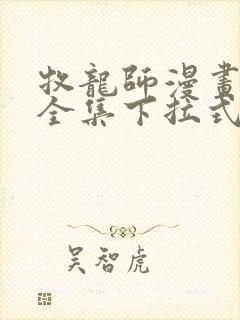 牧龍師漫畫
全集下拉式
吴智虎